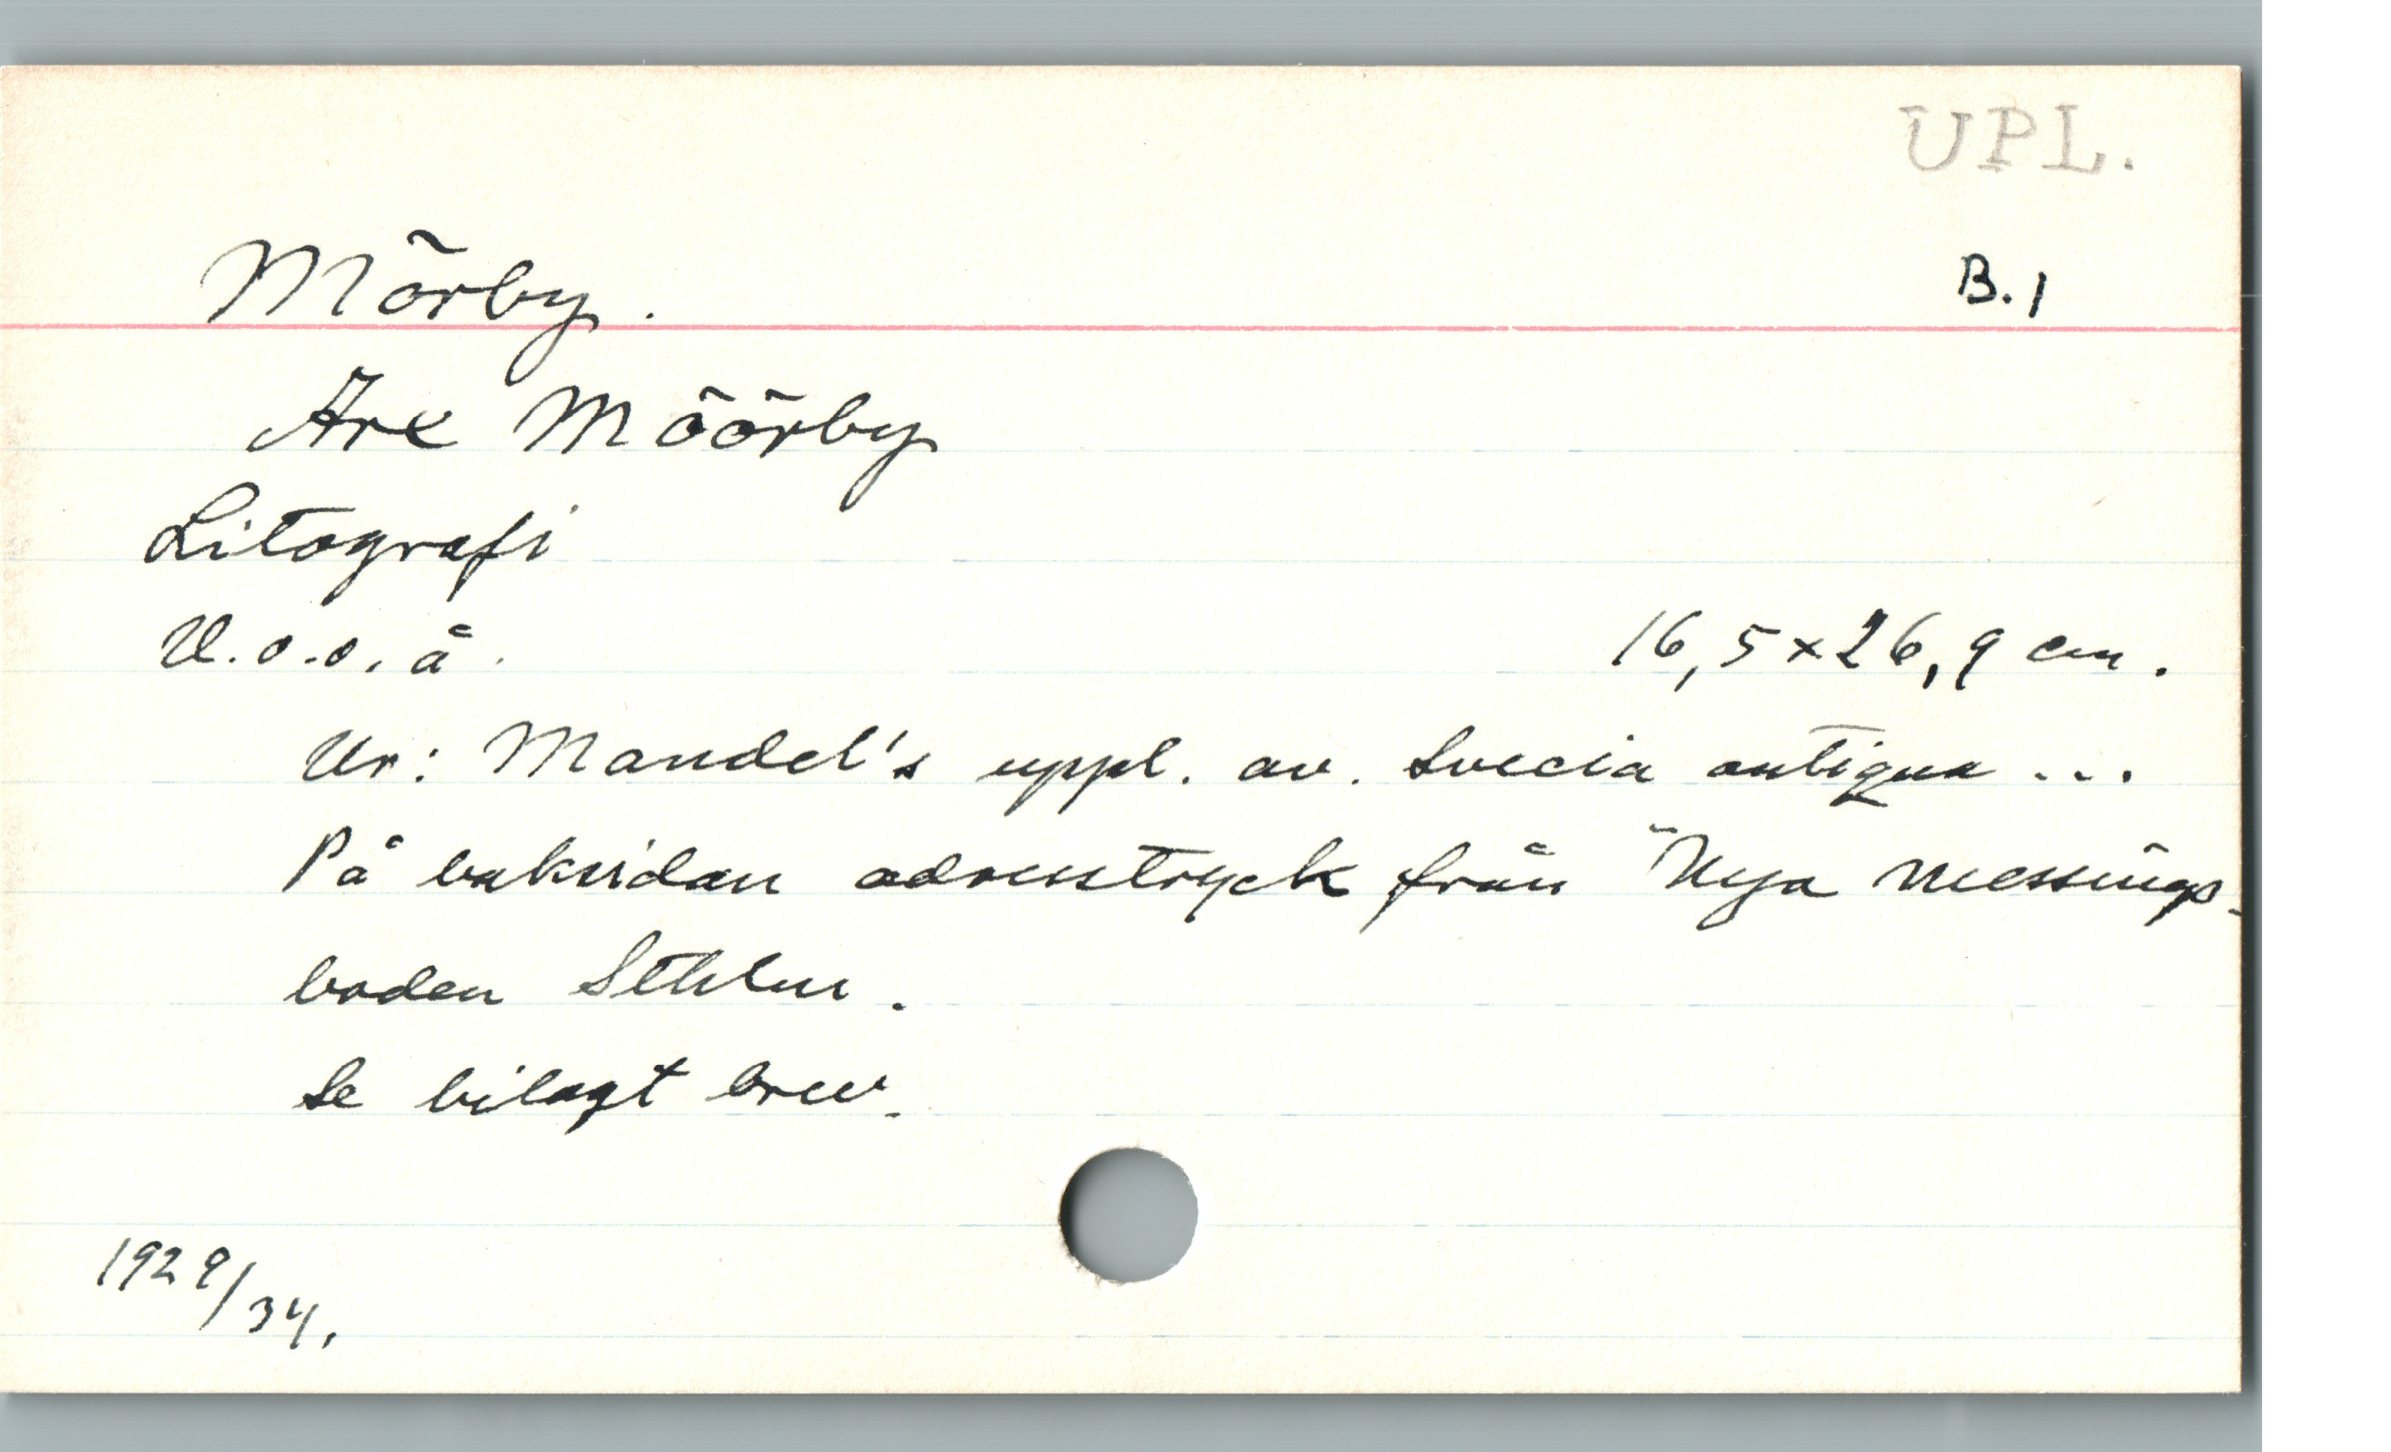 UPL.
Mörby.
B.1
Arx Möörby
Litografi
U.o.o.å.
16,5×26,9 cm.
Ur: Mandel's uppl. av. Svecia antiqua ...
På baksidan adresstryck från "Nya Messings-
boden Sthlm.
Se bilagt brev.
1929/34.